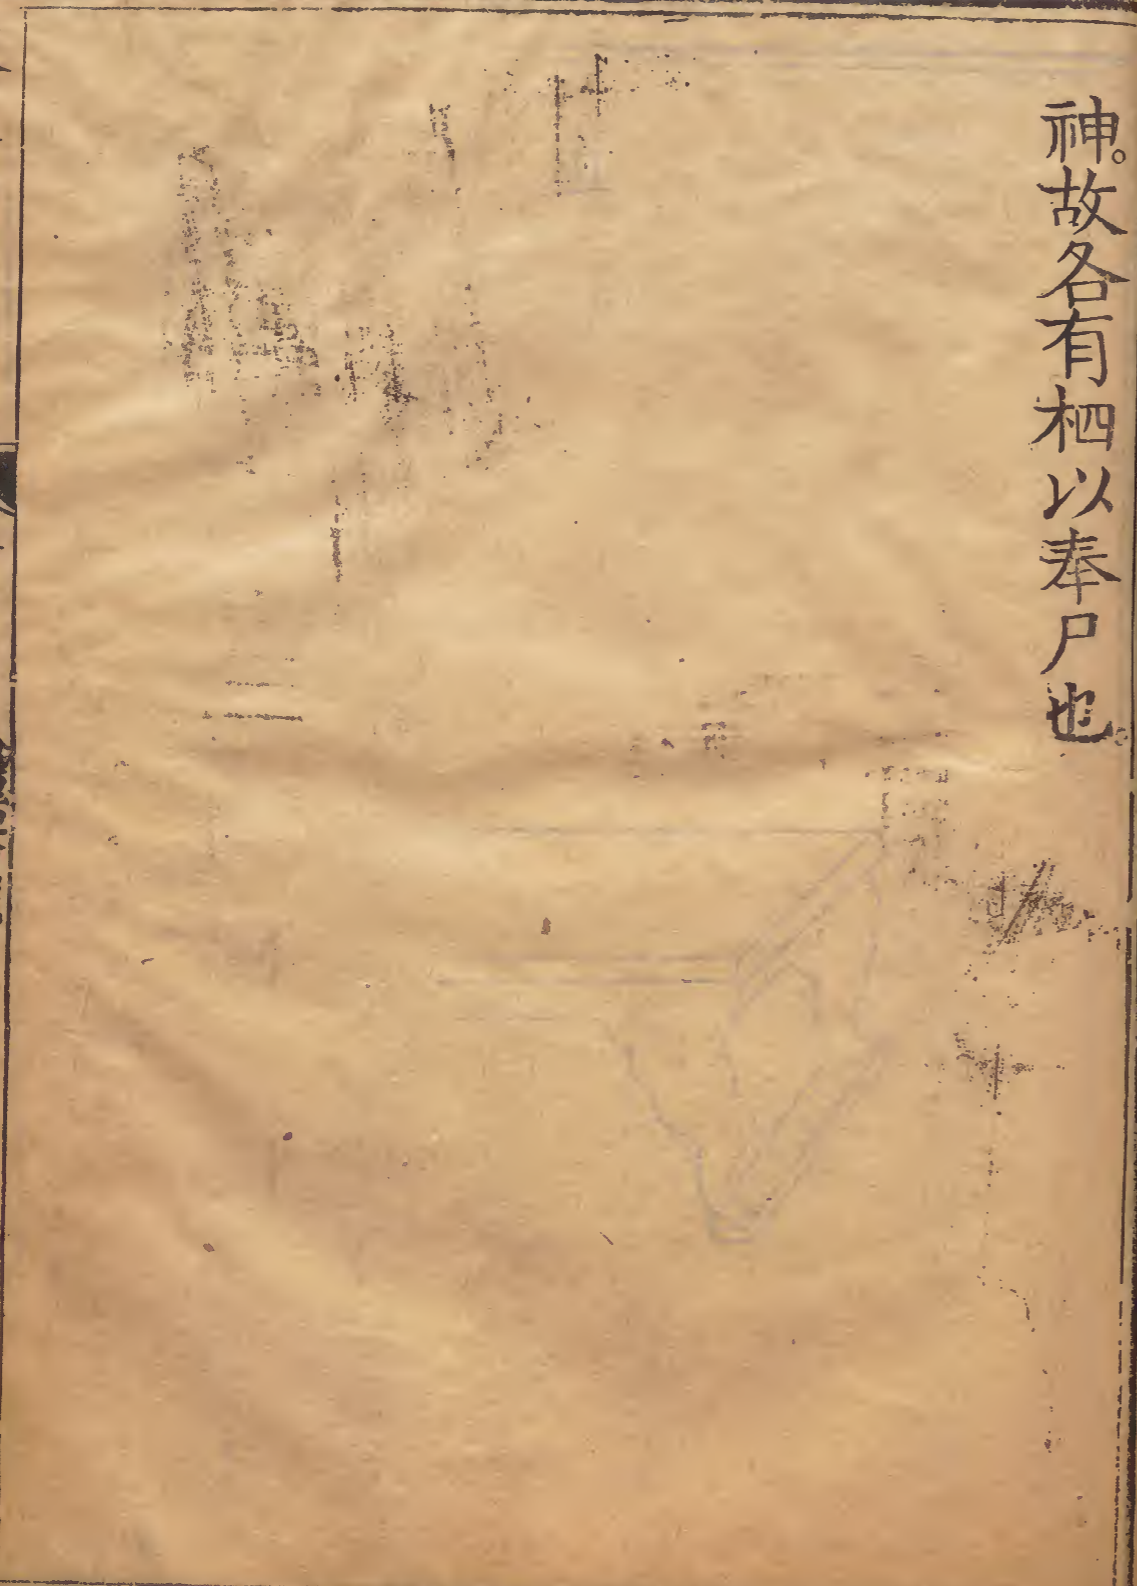 神。故各有柶以奉尸也。